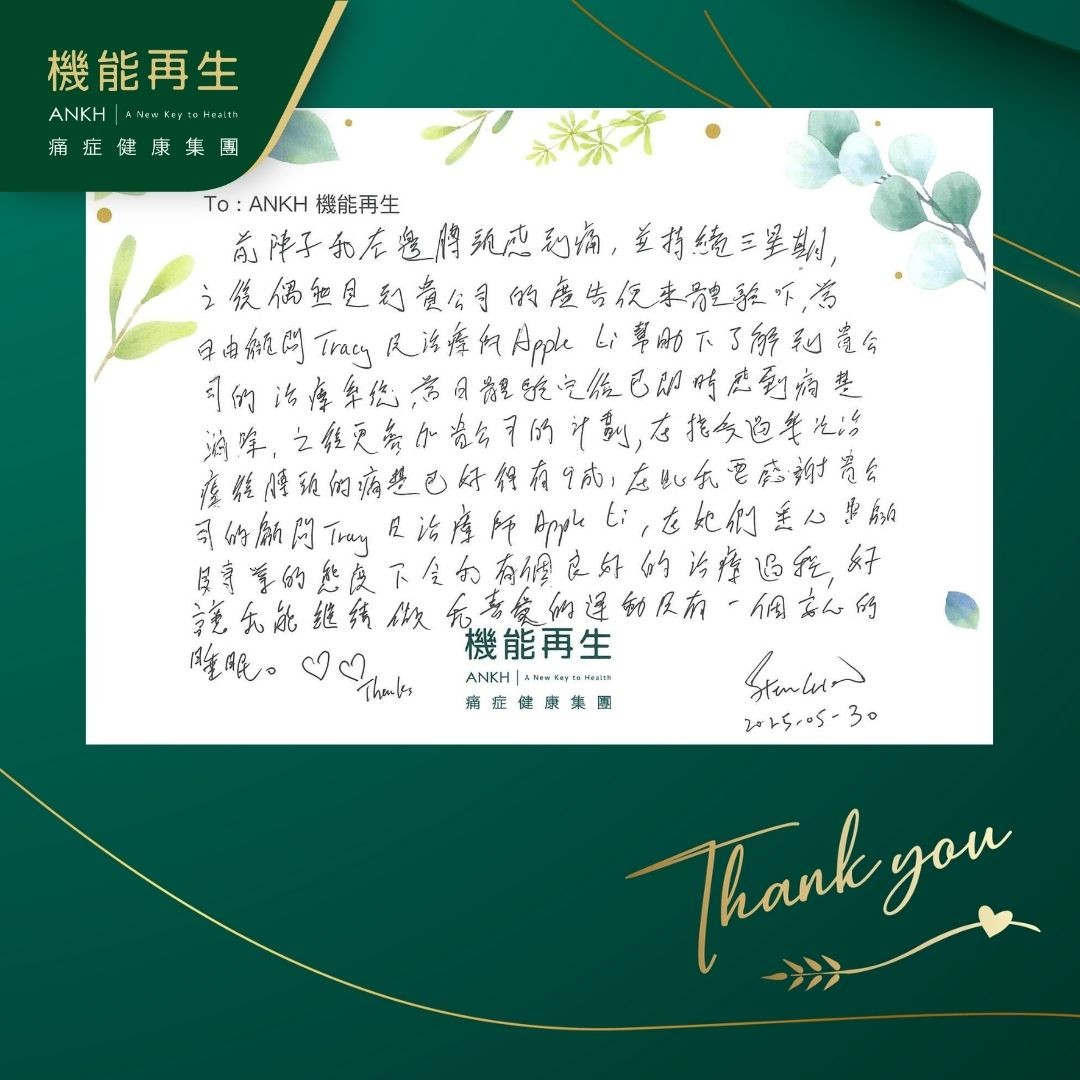 機能再生
ANKH | A New Key to Health
痛症健康集團
To : ANKH 機能再生
前陣子我左邊膊頭感到痛，並持續三星期，
之後偶然見到貴公司的廣告便來體驗吓，當
日由顧問Tracy及治療師Apple Li幫助下了解到貴公
司的治療系統，當日體驗完後已即時感到痛楚
消除，之後更參加貴公司的計劃，在接受過幾次治
療後膊頭的痛楚已好得有9成，在此我要感謝貴公
司的顧問Tracy及治療師Apple Li，在她們主人
及專業的態度下令我有個良好的治療過程，好
讓我能繼續做我喜愛的運動及有一個安心的
睡眠。♡♡
Thanks
2025-05-30
機能再生
ANKH | A New Key to Health
痛症健康集團
Thank you